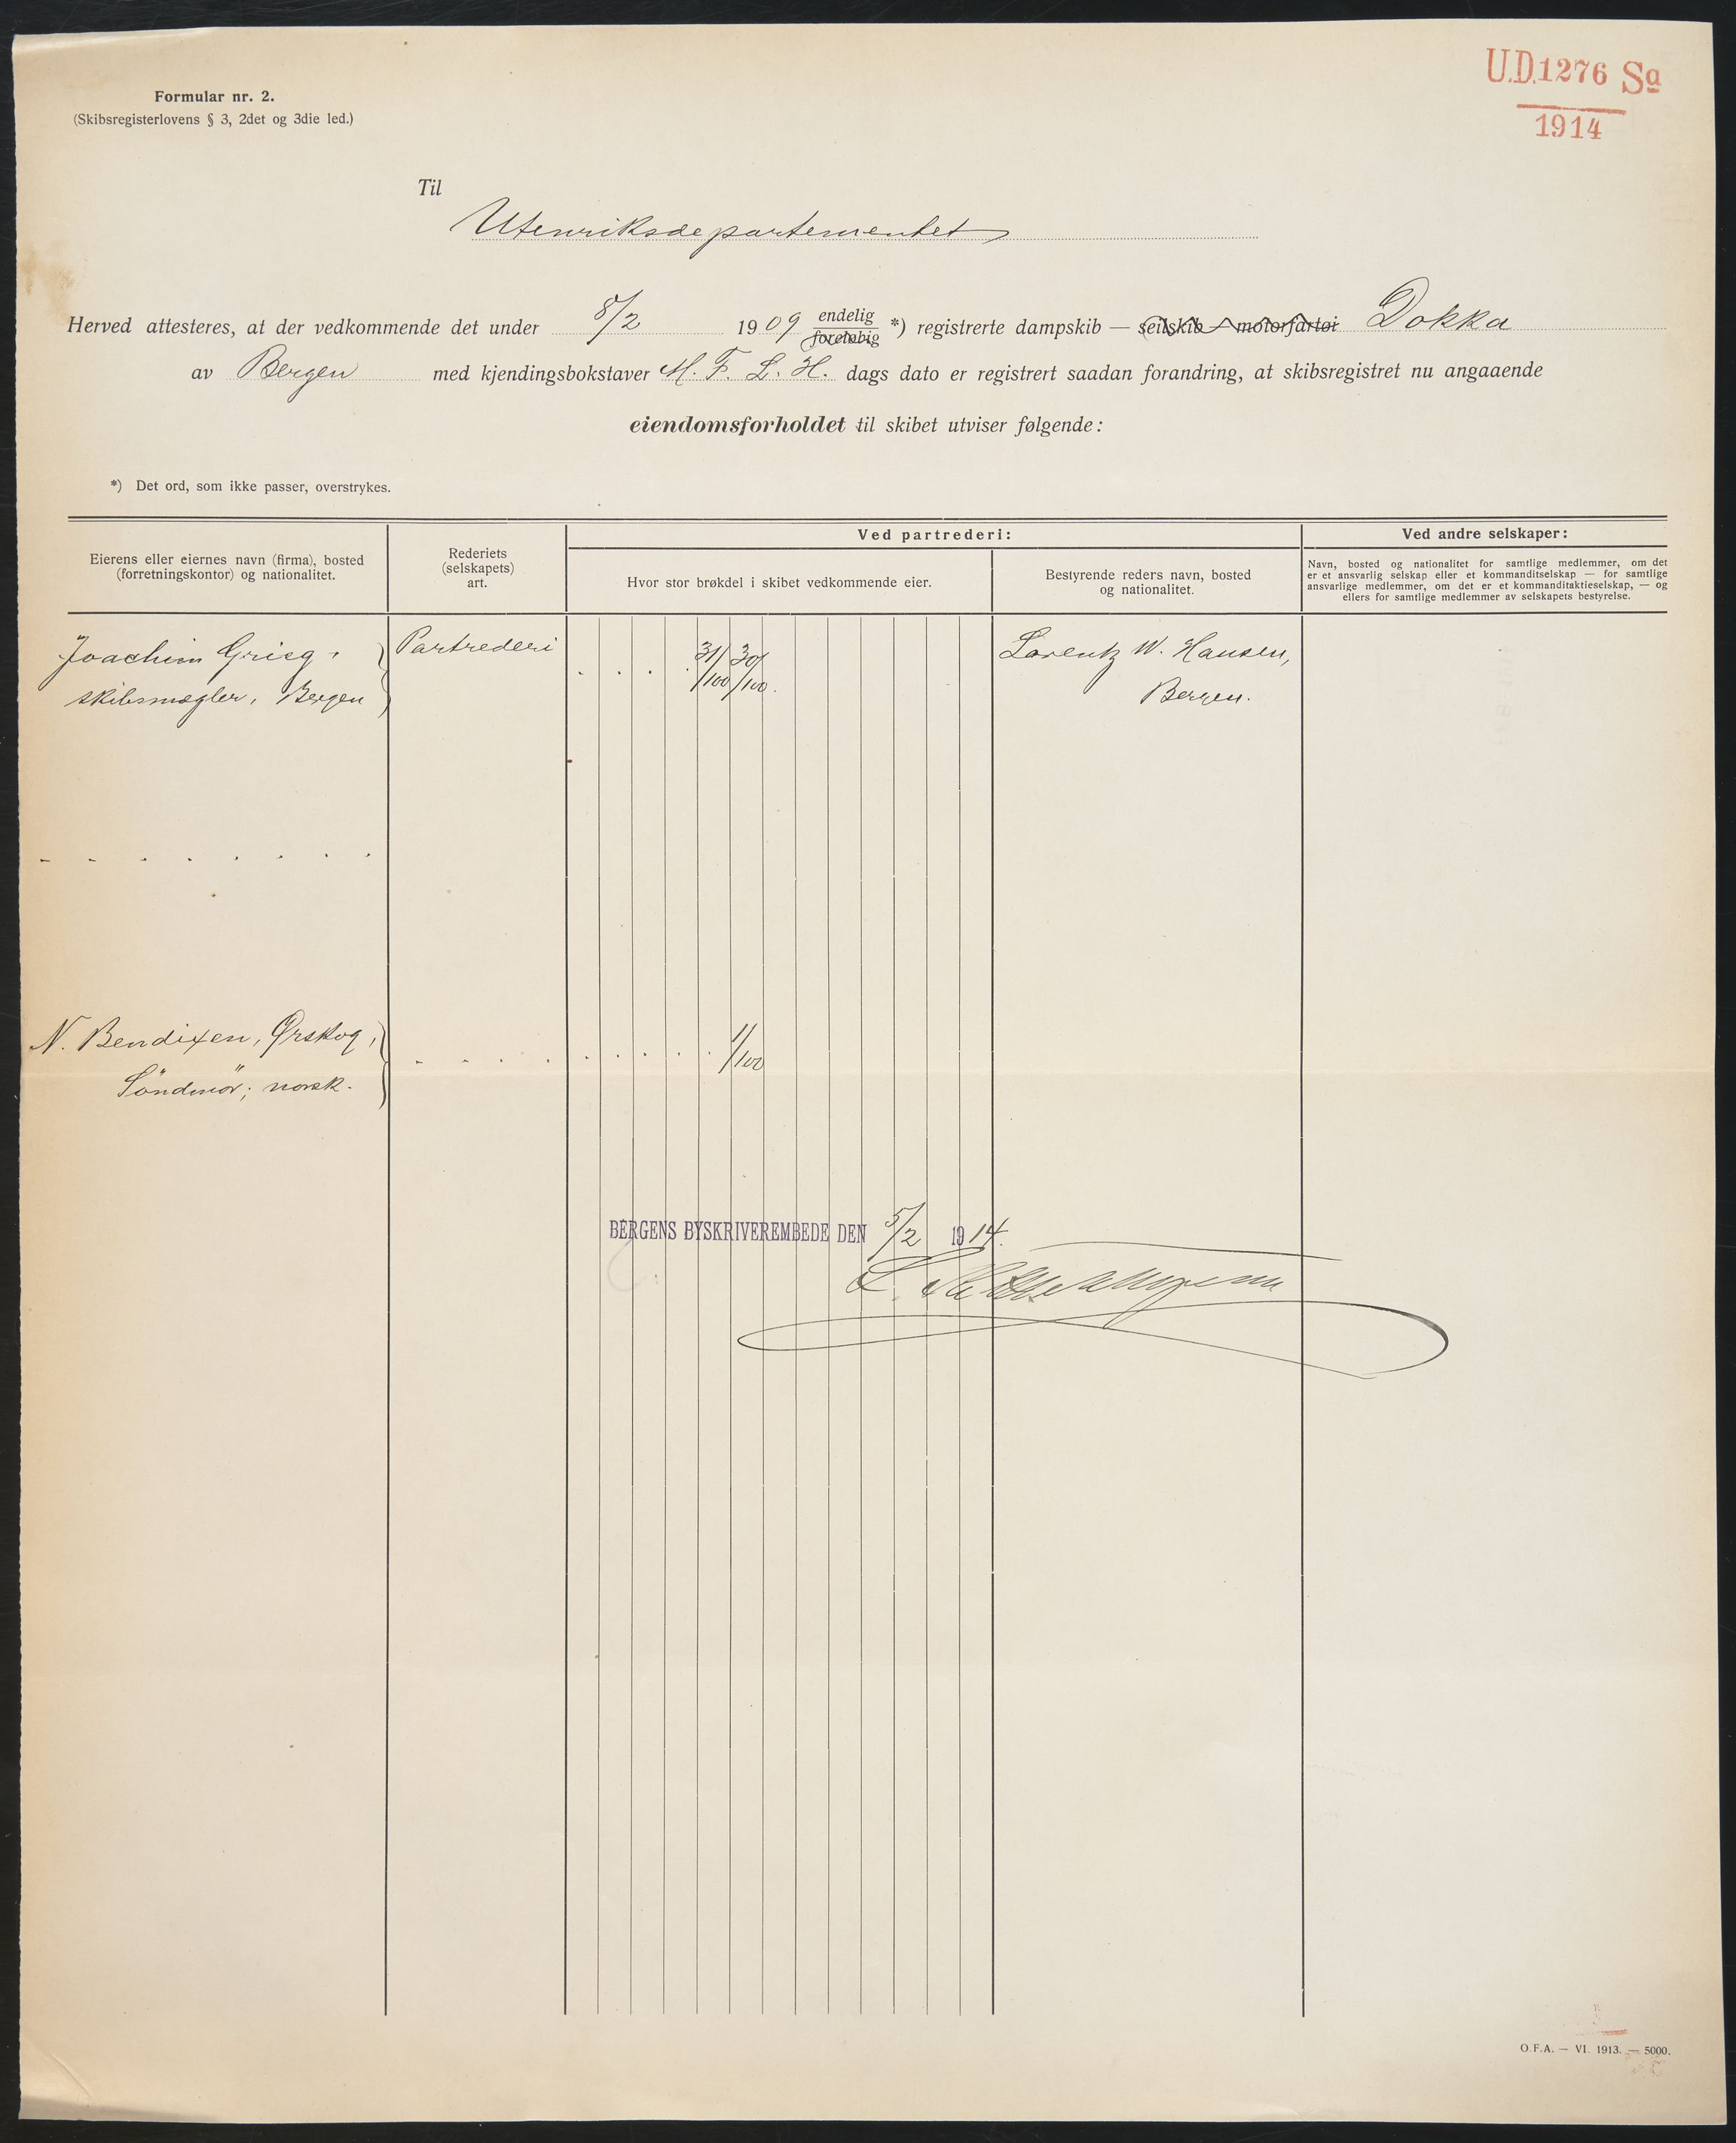 U.D.1276 Sa
1914
Formular nr. 2.
(Skibsregisterlovens § 3, 2det og 3die led.)
Til
Utenriksdepartementet
Herved attesteres, at der vedkommende det under 8/2 1909 endelig foreløbig *) registrerte dampskib — seilskib — motorfartøi Dokka
av Bergen med kjendingsbokstaver M. F. L. H. dags dato er registrert saadan forandring, at skibsregistret nu angaaende
eiendomsforholdet til skibet utviser følgende:
*) Det ord, som ikke passer, overstrykes.
Ved partrederi:
Ved andre selskaper:
Eierens eller eiernes navn (firma), bosted
(forretningskontor) og nationalitet.
Rederiets
(selskapets)
art.
Hvor stor brøkdel i skibet vedkommende eier.
Bestyrende reders navn, bosted
og nationalitet.
Navn, bosted og nationalitet for samtlige medlemmer, om det
er et ansvarlig selskap eller et kommanditselskap — for samtlige
ansvarlige medlemmer, om det er et kommanditaktieselskap, — og
ellers for samtlige medlemmer av selskapets bestyrelse.
Joachim Grieg, Partrederi 31/100 30/100. Lorentz W. Hansen,
skibsmægler, Bergen Bergen.
N. Bendixen, Ørskog, 1/100
Söndmör; norsk.
BERGENS BYSKRIVEREMBEDE DEN 5/2 1914.
O.F.A. — VI. 1913. — 5000.